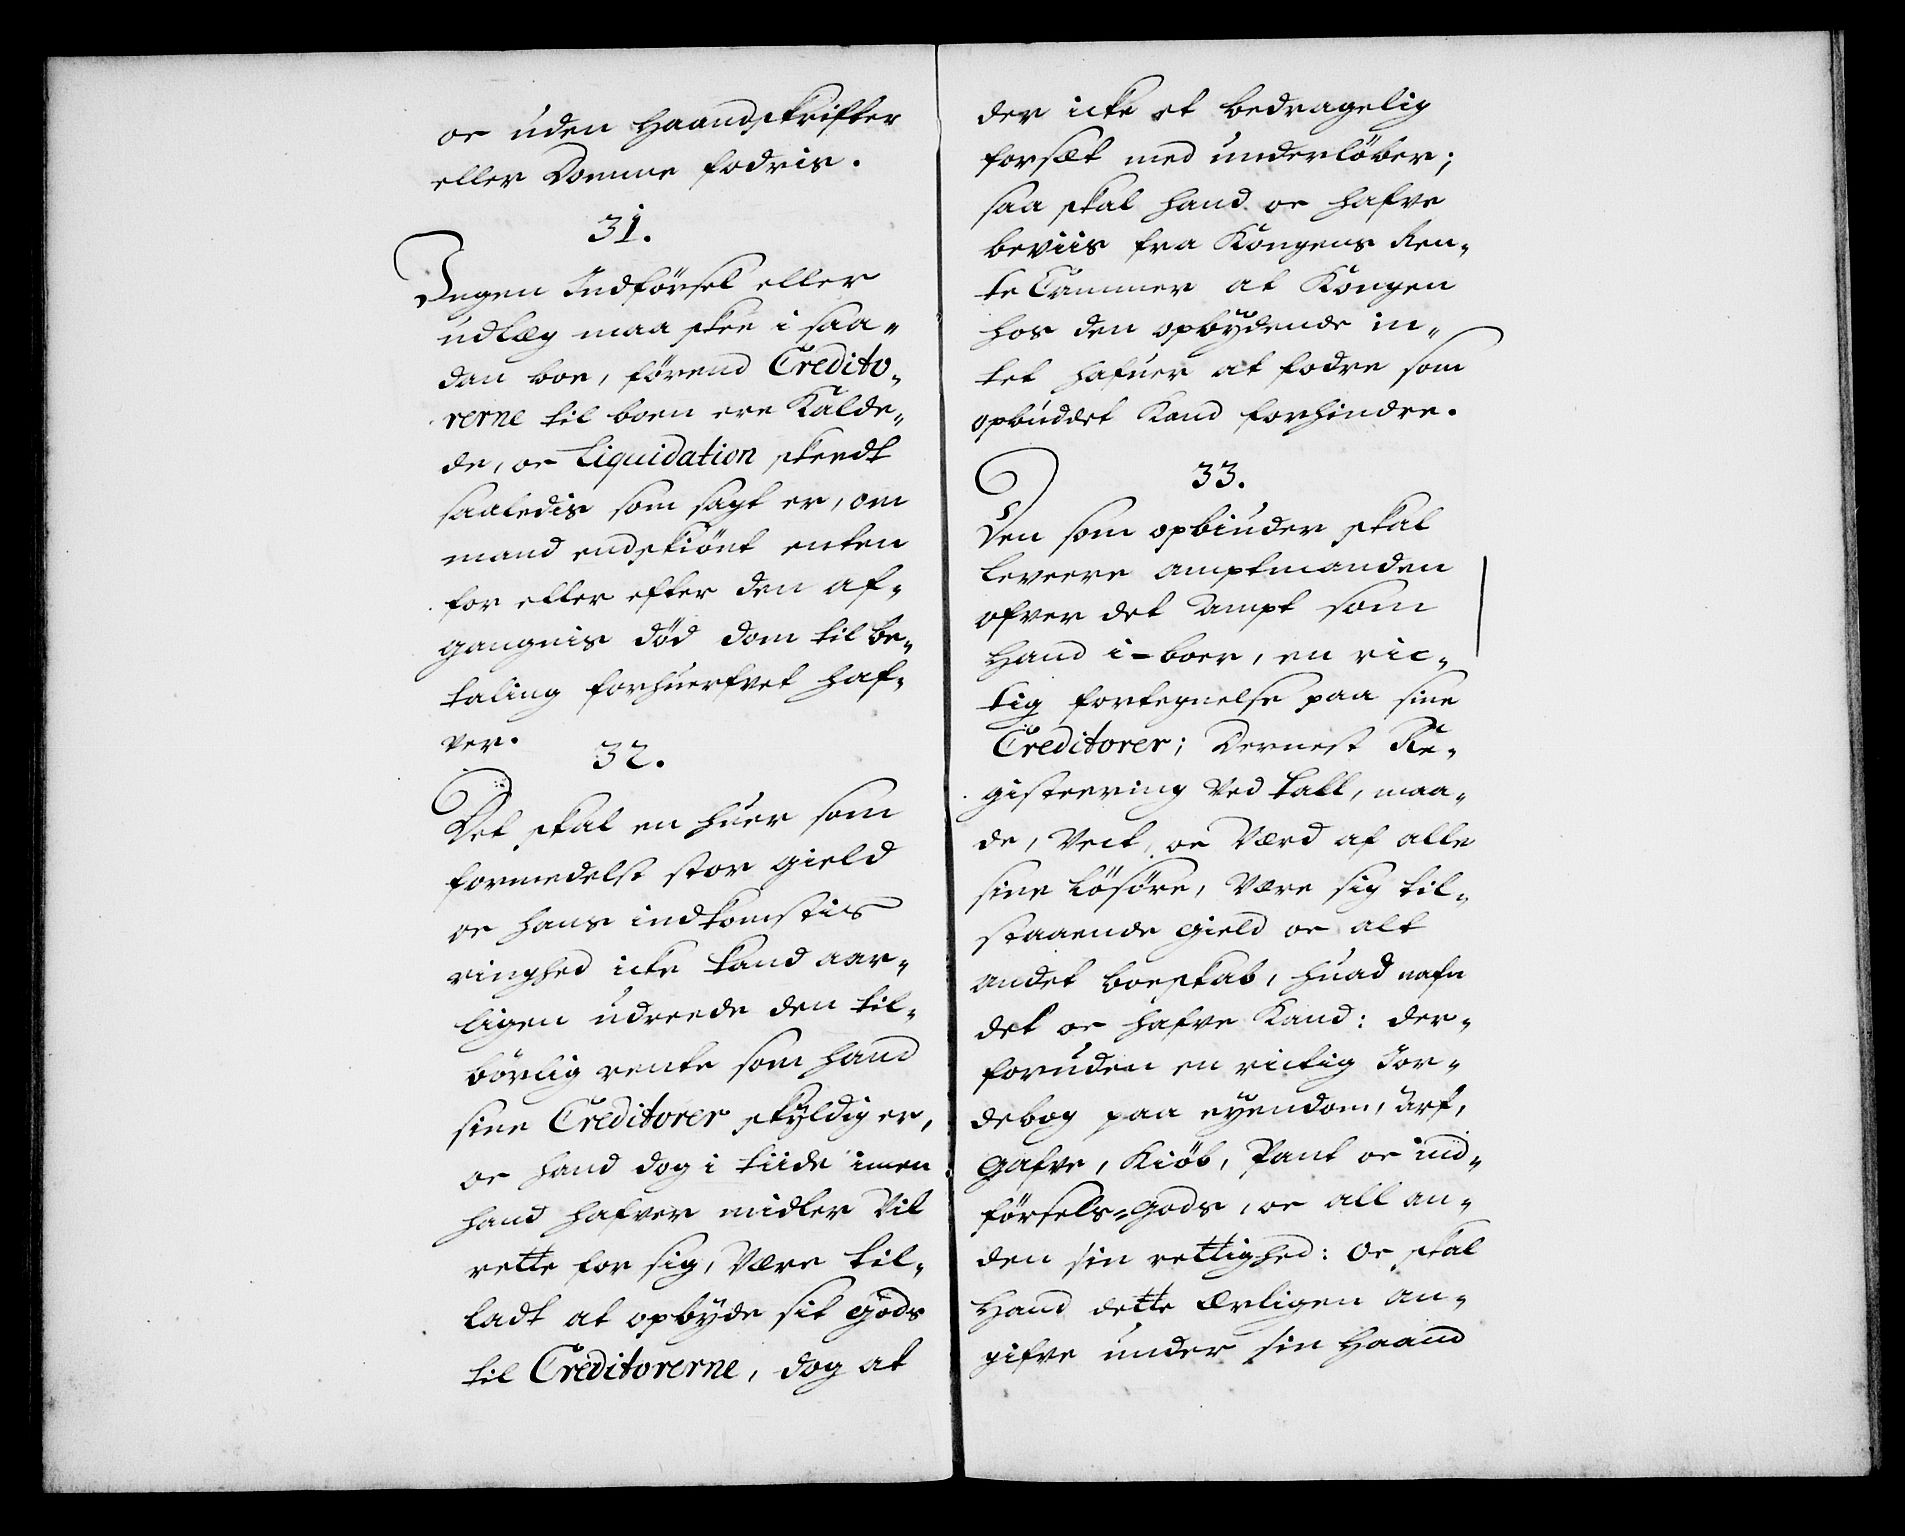 oc uden Haandskrifter
eller Domme fodris.
31.
Ingen Indførsel eller
udlæg maa skee i saa-
dan boe, førend Credito-
rerne til boen ere Kalde-
de, oc Liquidation skeedt
saaledis som sagt er, om
mand endskiönt enten
for eller efter den af-
gangnis död dom til be-
taling forhuerfvet haf-
ver.
32.
Det skal en huer som
formedelst stor gield
oc hans indkomstis
ringhed icke kand aar-
ligen udreede den til-
børlig rente som hand
sine Creditorer skÿldig er,
oc hand dog i tiide imen
hand hafver midler vil
rette for sig, være til-
ladt at opbÿde sit gods
til Creditorerne, dog at
der icke et bedragelig
forsæt med underlöber;
saa skal hand oc hafve
beviis fra Kongens Ren-
te Cammer at Kongen
hos den opbÿdende in-
tet hafuer at fodre som
opbuddet Kand forhindre.
33.
Den som opbiuder skal
levere amptmanden
ofver det ampt som
Hand i-boer, en ric-
tig fortegnelse paa sine
Creditorer; Dernest Re-
gisteering ved tall, maa-
de, vect, oc værd af alle
sine lösöre, være sig til-
staaende gield oc alt
andet boeskab, huad nafn
det oc hafve Kand: der-
foruden en rictig Jor-
debog paa eÿendom, arf,
gafve, Kiöb, Pant oc ind-
førsels-gods, oc all an-
den sin rettighed: Oc skal
Hand dette ærligen an-
gifve under sin Haand